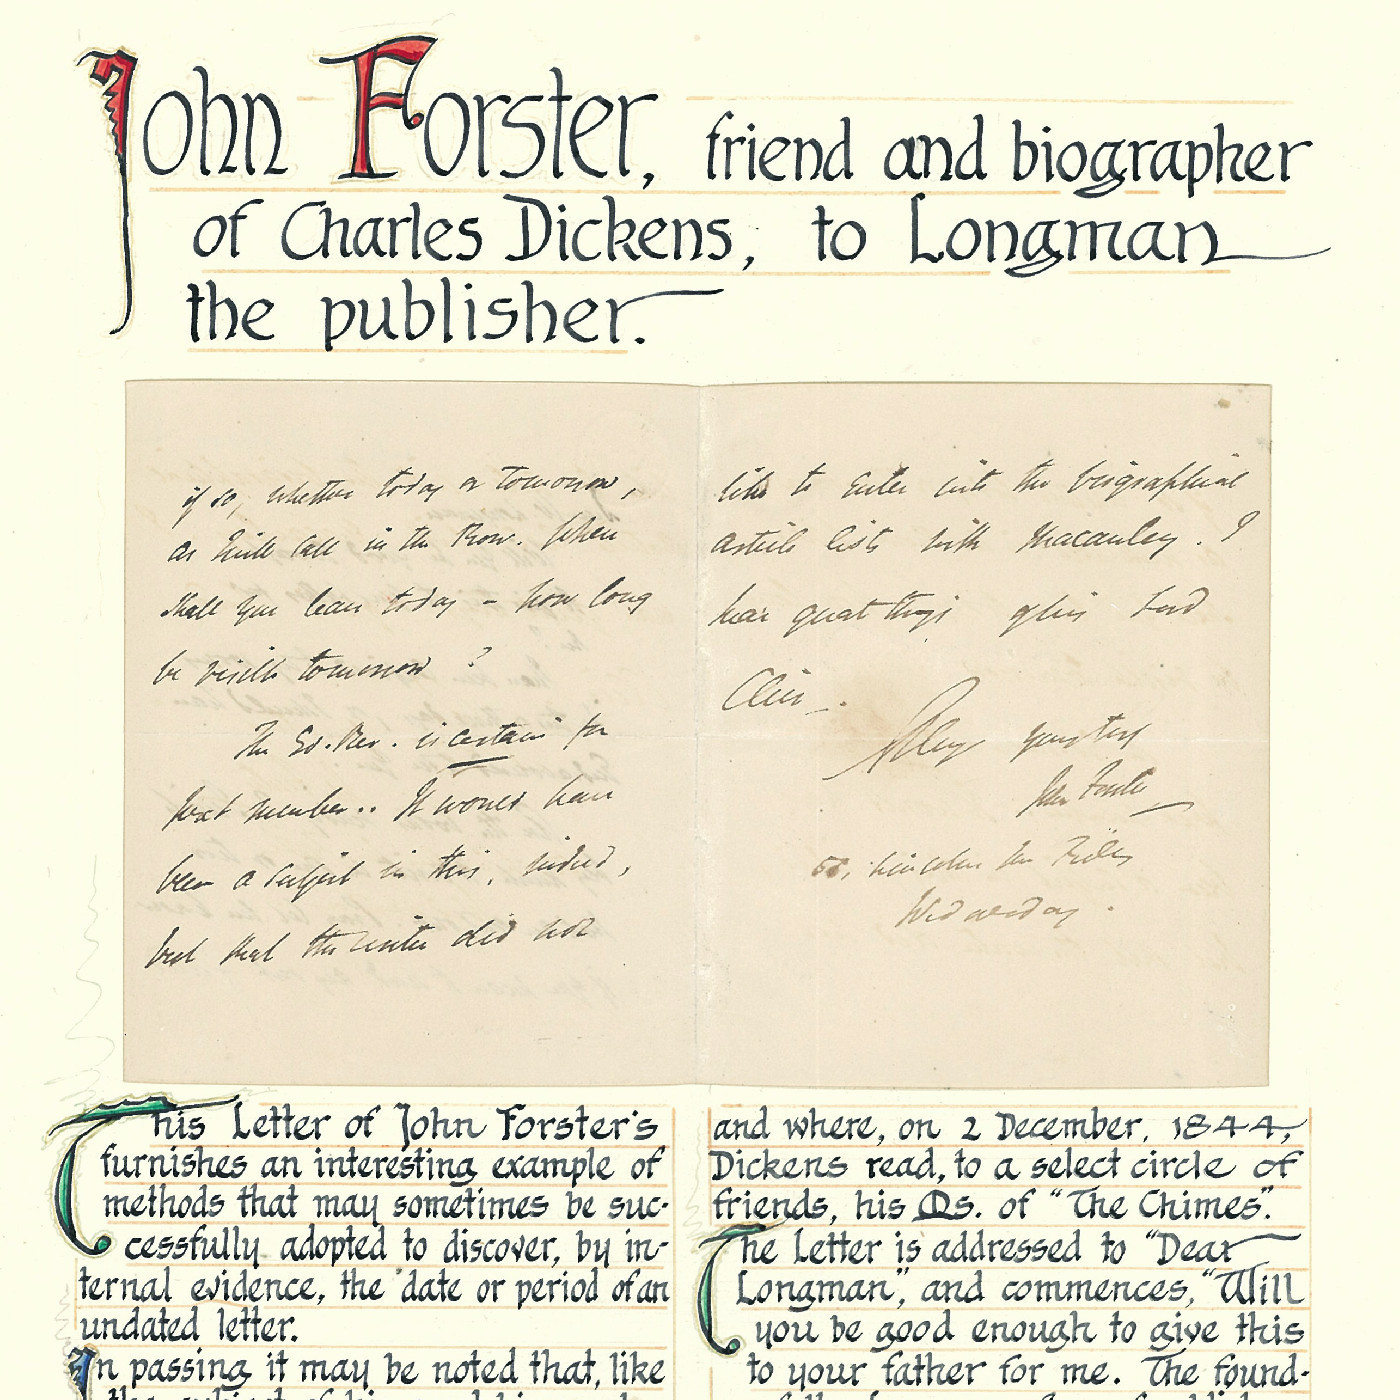 John Forster, friend and biographer
of Charles Dickens, to Longman
the publisher.
if so, whether today or tomorrow,
as I will call in the Row. When
shall you leave today – how long
be visible tomorrow ?
The Ed. Rev. is certain for
next number.. It would have
been a subject in this, indeed,
but that the writer did not
like to enter into the biographical
article lists with Macaulay. I
hear great things of this Lord
Clive.
Always yours truly
John Forster
58, Lincoln's Inn Fields
Wednesday.
This Letter of John Forster's
furnishes an interesting example of
methods that may sometimes be suc-
cessfully adopted to discover, by in-
ternal evidence, the date or period of an
undated letter.
In passing it may be noted that, like
and where, on 2 December, 1844,
Dickens read, to a select circle of
friends, his Ms. of "The Chimes".
The Letter is addressed to "Dear
Longman", and commences, "Will
you be good enough to give this
to your father for me. The found-